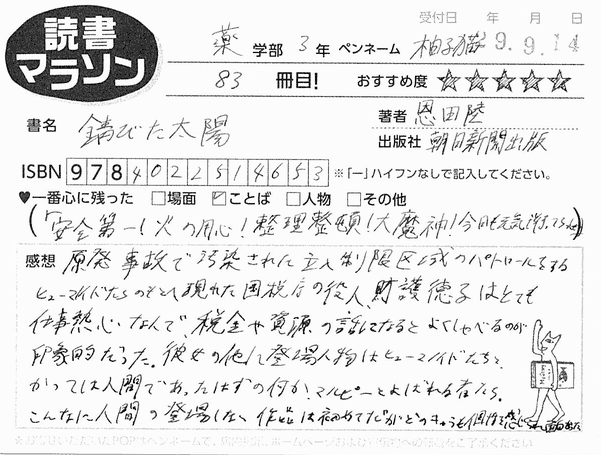 受付日 年 月 日
読書
マラソン
薬 学部 3 年 ペンネーム 柚子猫 9.9.14
83 冊目! おすすめ度 ☆☆☆☆☆
書名 錆びた太陽
著者 恩田陸
出版社 朝日新聞出版
ISBN 9784022514653 ※「ー」ハイフンなしで記入してください。
♥一番心に残った □場面 ☑ことば □人物 □その他
(「安全第一!火の用心!整理整頓!大魔神!今日も元気
感想 原発事故で汚染された立入制限区域のパトロールをする
ヒューマノイドたちのもとへ現れた国税庁の役人、財護徳子はとても
仕事熱心なんで税金や資源の話になるとよくしゃべるのが
印象的だった。彼女の他に登場人物はヒューマノイドたちと、
かつては人間であったはずの何か、マルピーとよばれる者たち。
こんなに人間の登場しない作品は初めてだがどのキャラも個性を感じ